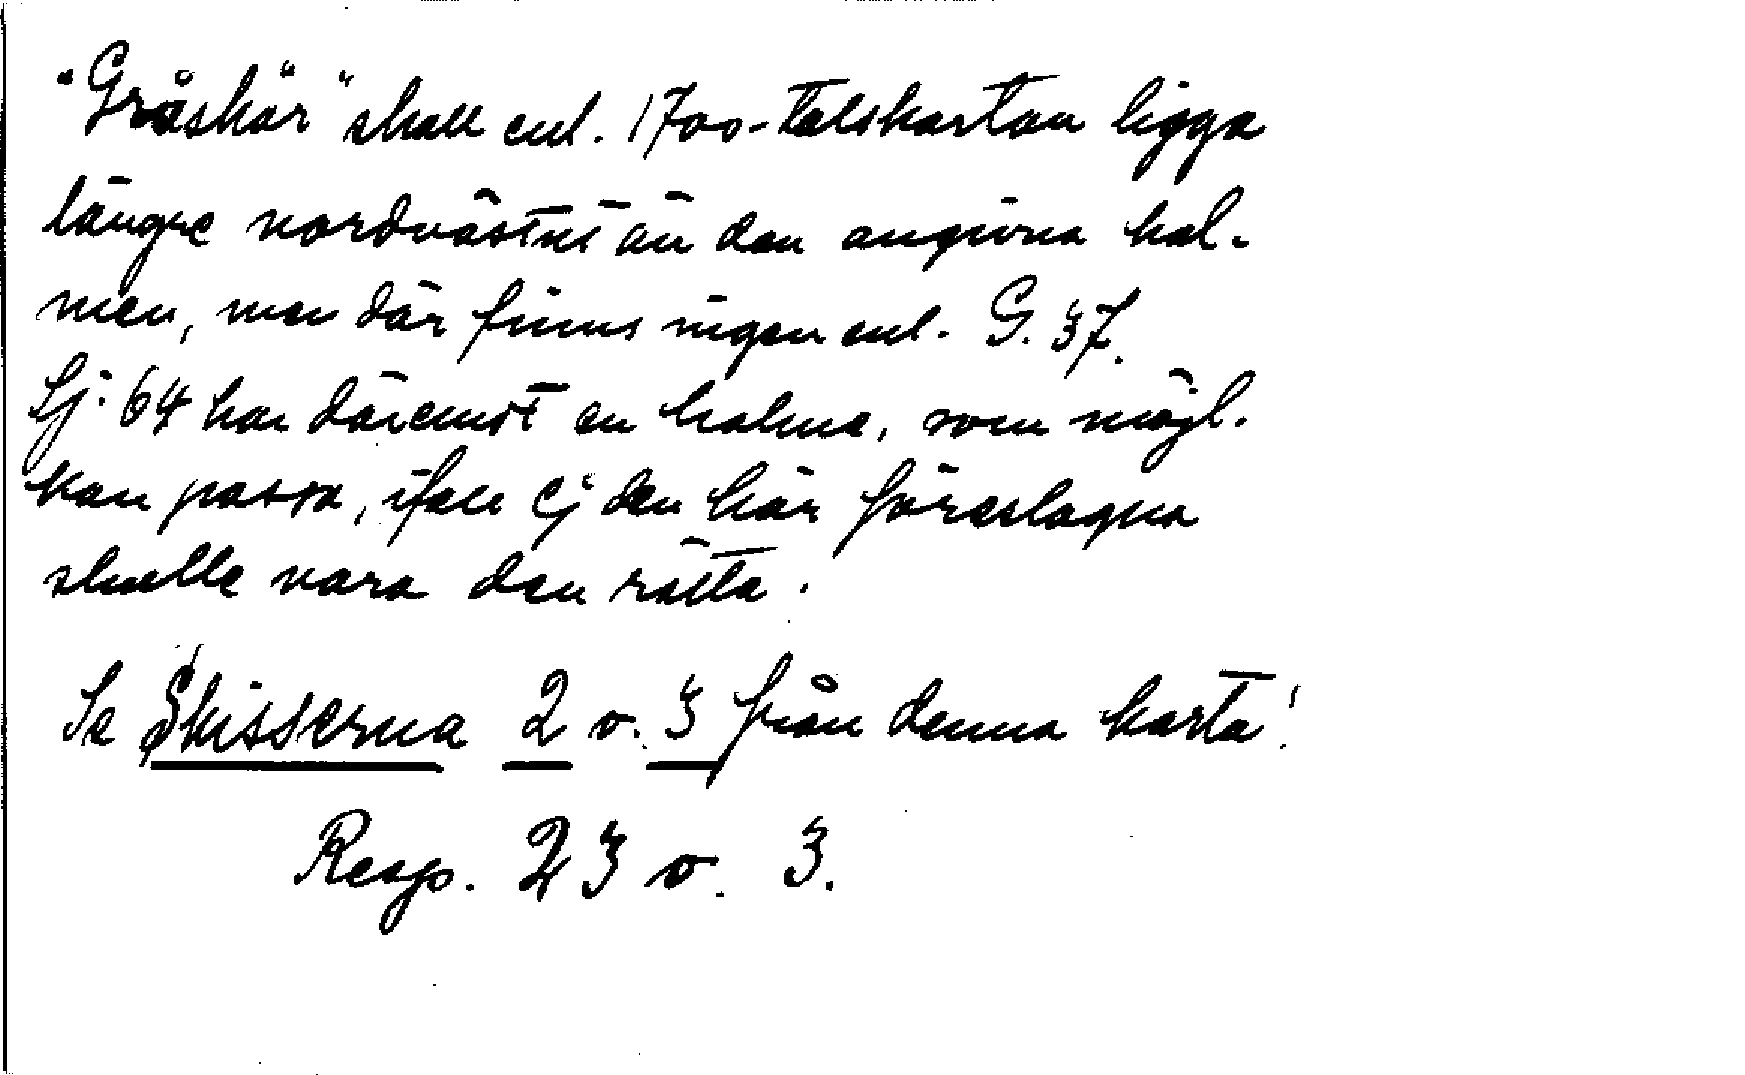 "Gråskär" skall enl. 1700-talskartan ligga
längre nordvästut än den angivna hol-
men, men där finns ingen enl. G. 37.
Sj. 64 har däremot en holme, som möjl.
kan passa, ifall ej den här föreslagna
skulle vara den rätta.
Se Skisserna 2 o. 3 från denna karta!
Resp. 23 o. 3.